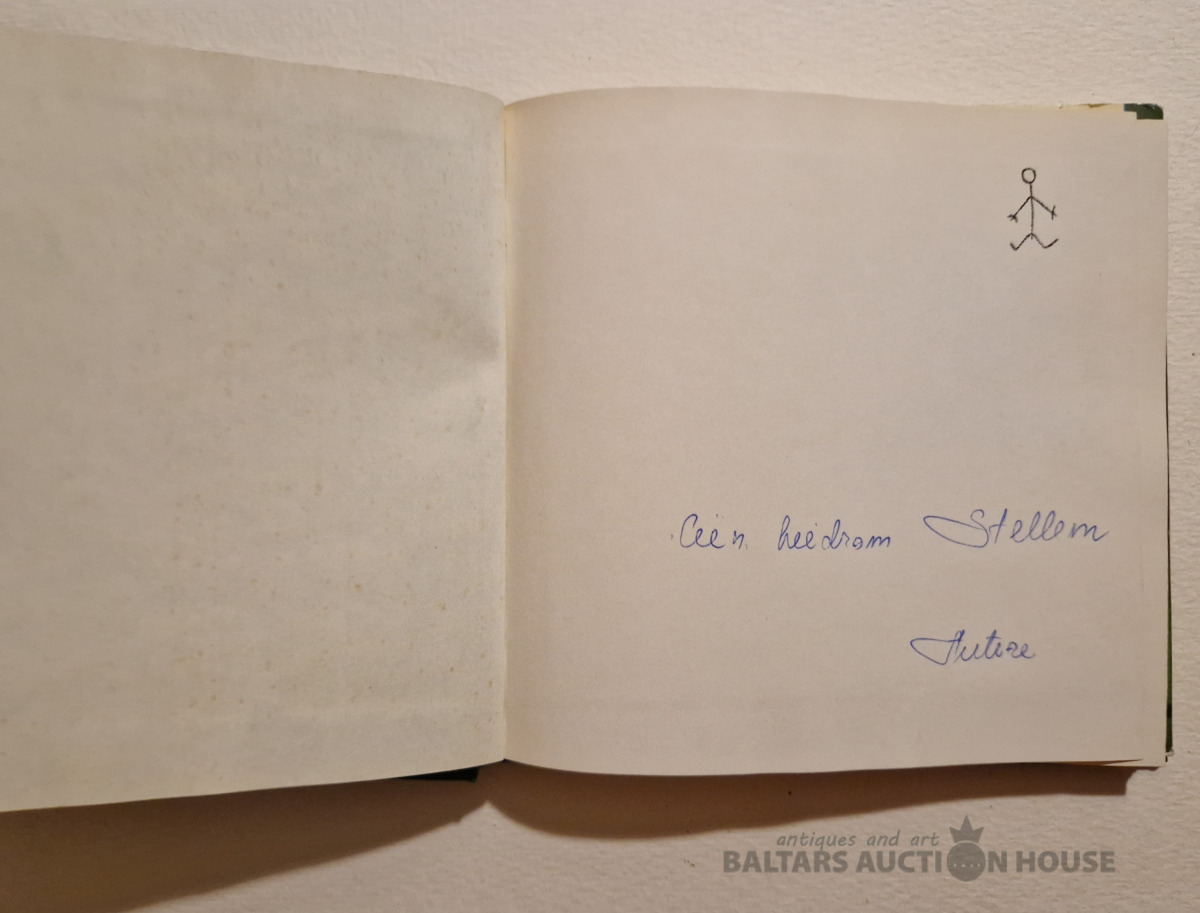 Cien. biedram Stellem
Autore
antiques and art
BALTARS AUCTION HOUSE